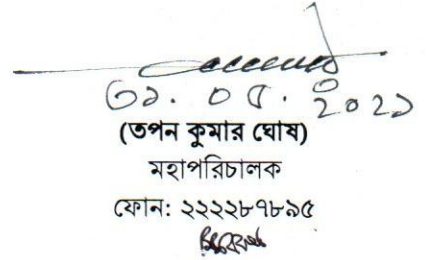 ৩১. ০৫. ২০২১
(তপন কুমার ঘোষ)
মহাপরিচালক
ফোন: ২২২২৮৭৮৯৫